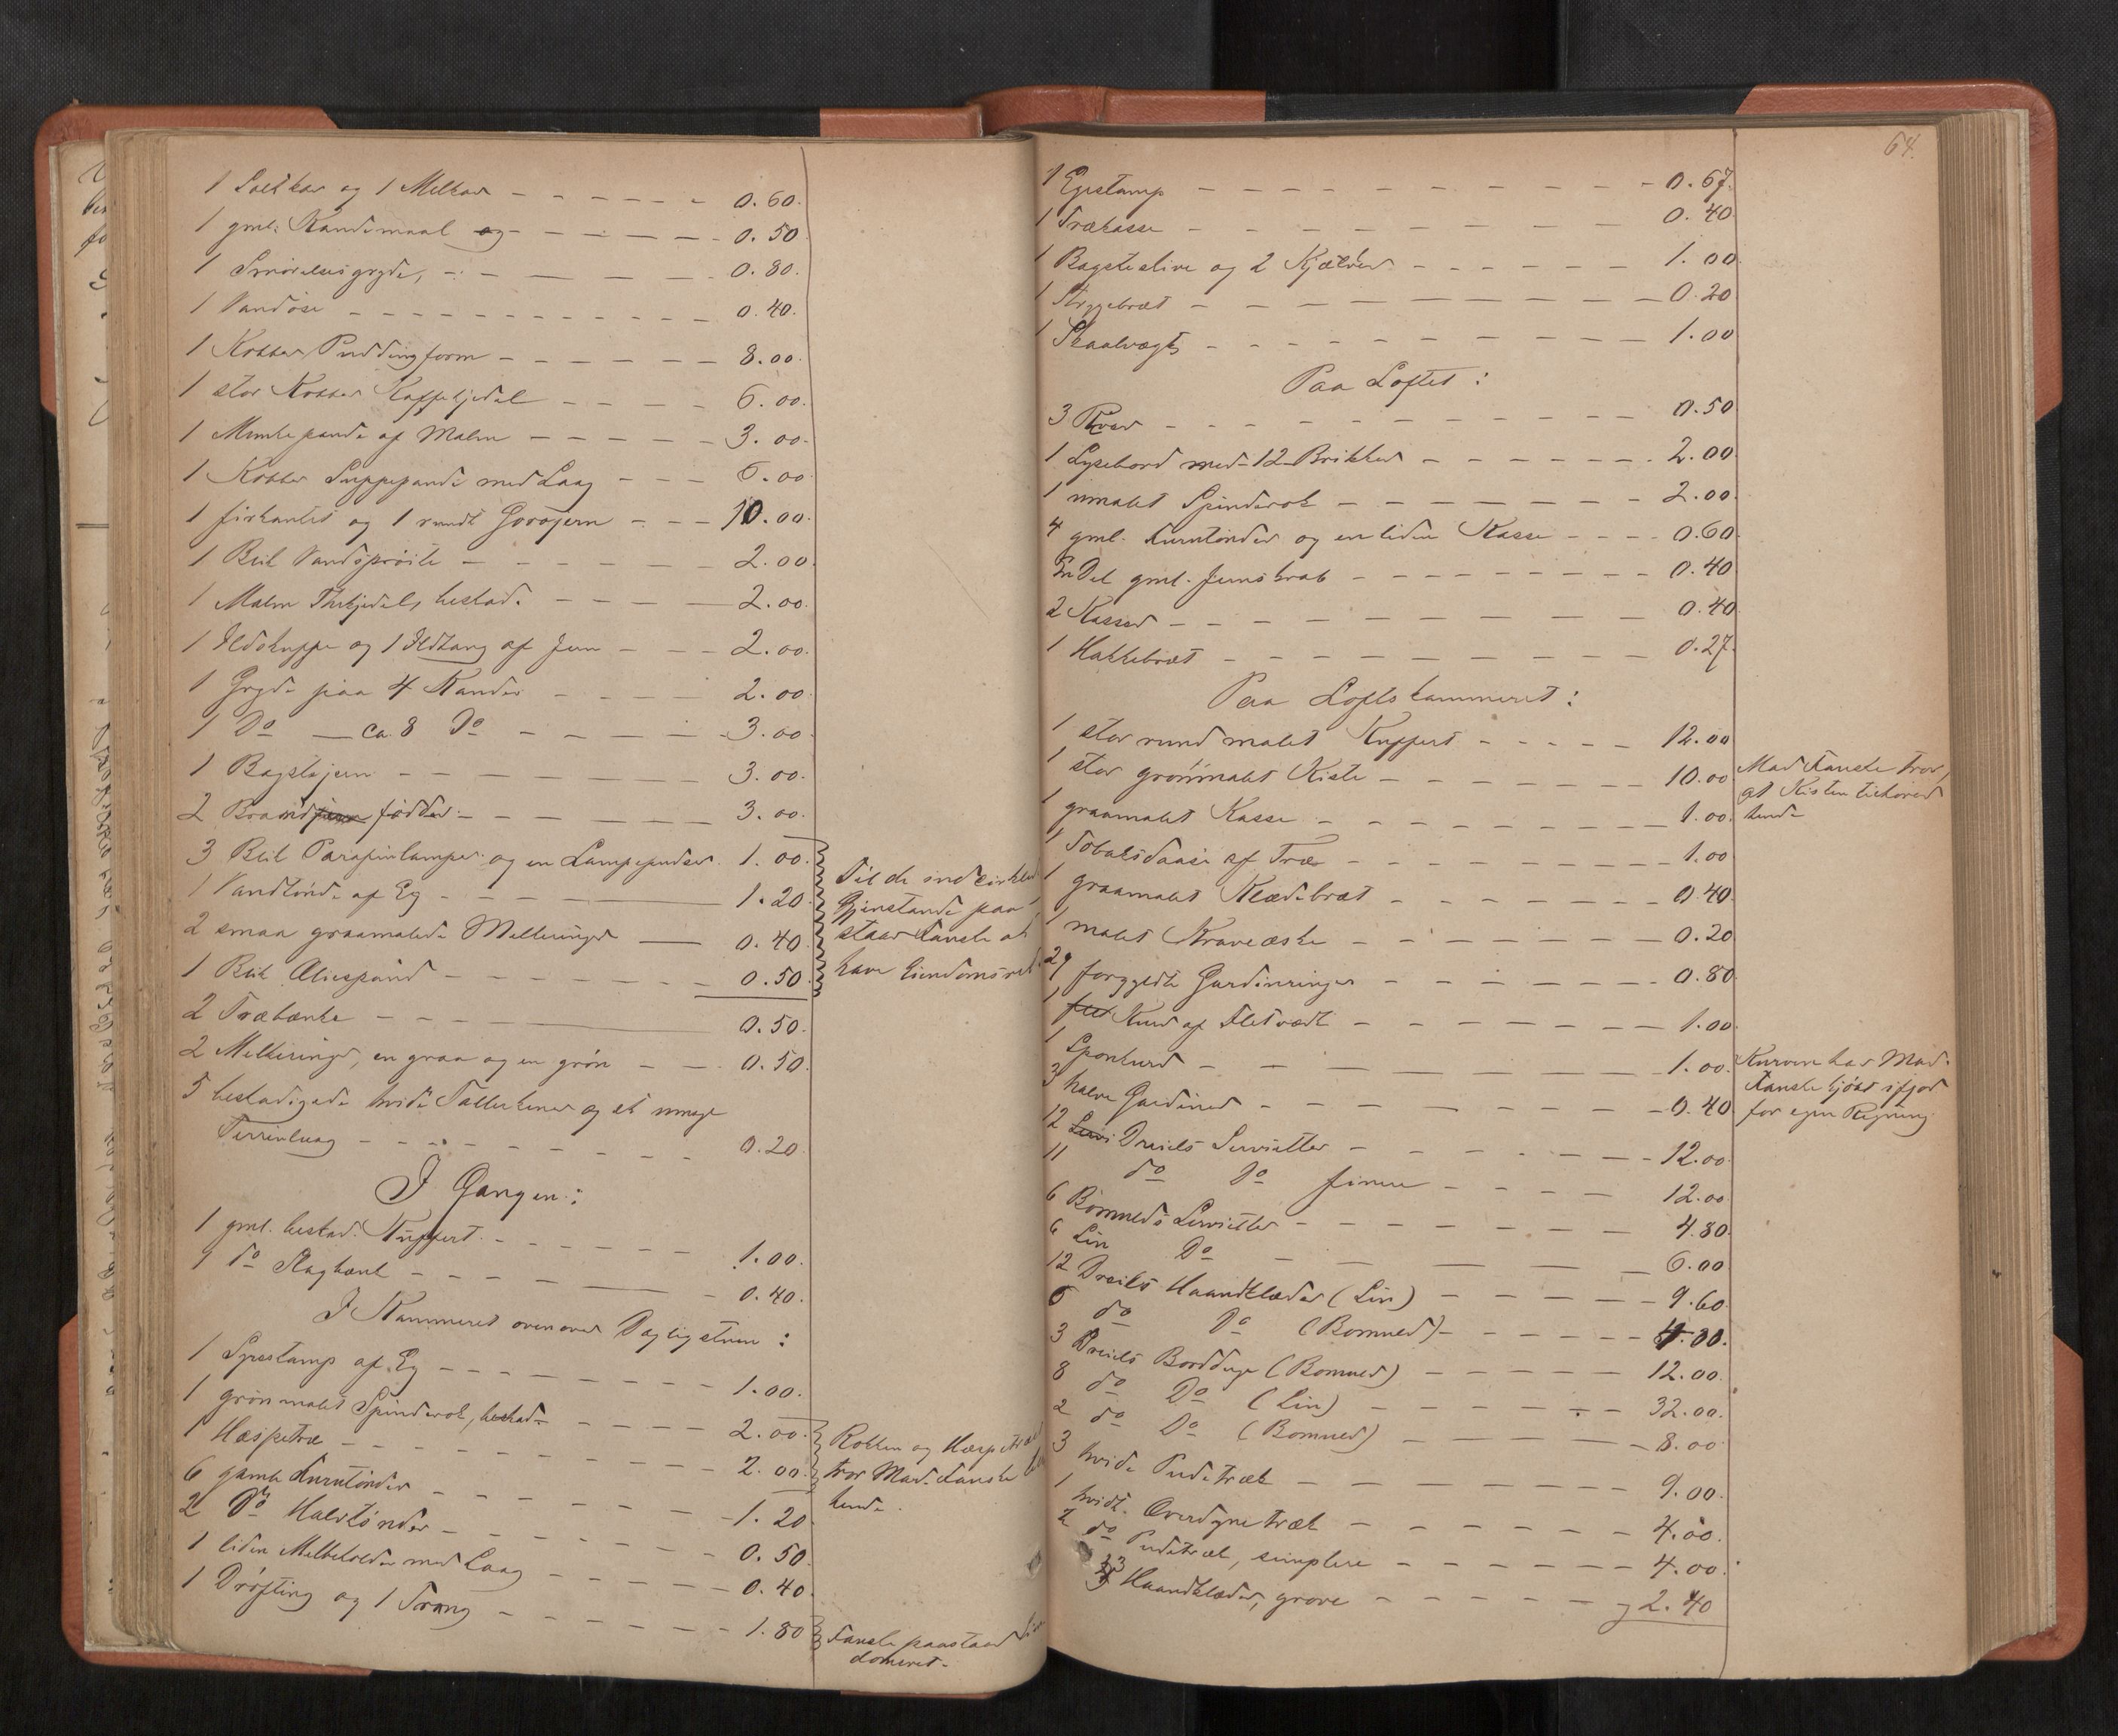 1 Saltkar og 1 Melkar - - - - - 0.60.
1 gml. Kandemaal og - - - - - 0.50
1 Smørelsesgryde, - - - - 0.80.
1 Vandøse - - - - - - - - 0.40.
1 Kobber Puddingform - - - - - 8.00.
1 stor Kobber Kaffekjedel - - - - 6.00.
1 Munkepande af Malm - - - - - 3.00.
1 Kobber Suppepande med Laag - - - 6.00
1 firkantet og 1 rundt Gorojern - - - 10.00.
1 Blik Vandsprøite - - - - - - 2.00.
1 Malm Thekjedel, beskad. - - - - 2.00.
1 Ildskuffe og 1 Ildtang af Jern - - - 2.00.
1 Gryde paa 4 Kander - - - - 2.00.
1 Do — ca. 8 Do - - - - - 3.00.
1 Bagstejern - - - - - - - 3.00.
2 Brandjern fødder - - - - - - 3.00.
3 Blik Parafinlamper og en Lampepudser. 1.00.
1 Vandtønde af Eg - - - - 1.20.
2 smaa graamalede Melkeringer — 0.40.
1 Blik Oliespand - - - - - - 0.50.
Til de indcirklede
Gjenstande paa-
staar Fanske at
have Eiendomsret.
2 Træbænke - - - 0.50.
2 Melkeringer, en graa og en grøn - - 0.50.
5 beskadigede hvide Tallerkener og et
Terrinlaag - - - - - - - 0.20
I Gangen:
1 gml. beskad. Kuffert - - - - - 1.00.
1 do Slagbænk - - - - - 0.40.
I Kammeret ovenover Dagligstuen:
1 Syrestamp af Eg - - - - - - 1.00.
1 grønmalet Spinderok, beskad. - - - - 2.00.
1 Haspetræ - - - - - - - 2.00.
Rokken og Haspetræet
tror Mad. Fanske
hende.
6 gamle Korntønder - - - - - - 1.20
2 Do Halvtønder - - - - - - 0.50.
1 liden Melbeholder med Laag - - - - 0.40.
1 Drøfting og 1 Traug - - - - - - 1.80
Fanske paastaar Eien-
domsret.
64.
1 Egestamp - - - - - - - - - 0.67.
1 Trækasse - - - - - - - - - 0.40
1 Bagsteslire og 2 Kjævler - - - - - 1.00
1 Strygebræt - - - - - - - - 0.20
1 Skaalvægt - - - - - - - - 1.00
Paa Loftet:
3 - - - - - - - - 0.50
1 Lysebord med 12 Brikker - - - - - 2.00
1 umalet Spinderok - - - - - - 2.00.
4 gml. Korntønder og en liden Kasse - - - 0.60.
En Del gml. Jernskrab - - - - - - - 0.40
2 Kasser - - - - - - - - 0.40
1 Hakkebræt - - - - - - - 0.27.
Paa Loftskammeret:
1 stor rund malet Kuffert - - - - 12.00
1 stor grønmalet Kiste - - - - - 10.00
Mad Fanske tror,
at Kisten tilhører
hende
1 graamalet Kasse - - - - - - - 1.00.
1 Tobaksdaase af Træ - - - - - - 1.00
1 graamalet Klædebræt - - - - - - 0.40.
1 malet Kraveæske - - - - - - 0.20
29 forgyldte Gardinringer - - - - - 0.80
1 flet Kurv af Fletværk - - - - - - 1.00.
1 Sponkurv - - - - - - - - 1.00.
Kurven har Mad.
Fanske kjøbt ifjor
for egen Regning
3 halve Gardiner - - - - - - - 0.40
12 Servi Dreiels Servietter - - - - - 12.00.
11 do Do finere - - - - 12.00.
6 Bomulds Servietter - - - - - - 4.80.
6 Lin Do - - - - - 6.00
12 Dreiels Haandklæder (Lin) - - - - - 9.60.
6 do Do (Bomuld) - - - - - 4.80.
3 Dreiels Bordduge (Bomuld) - - - - 12.00.
8 do Do (Lin) - - - - - 32.00.
2 do Do (Bomuld) - - - - - 8.00
3 hvide Pudetræk - - - - - - - 9.00.
1 hvidt Overdynetræk - - - - - - 4.00.
2 do Pudetræk, simplere - - - - - 4.00.
3 Haandklæder, grove - - - - - 2.40